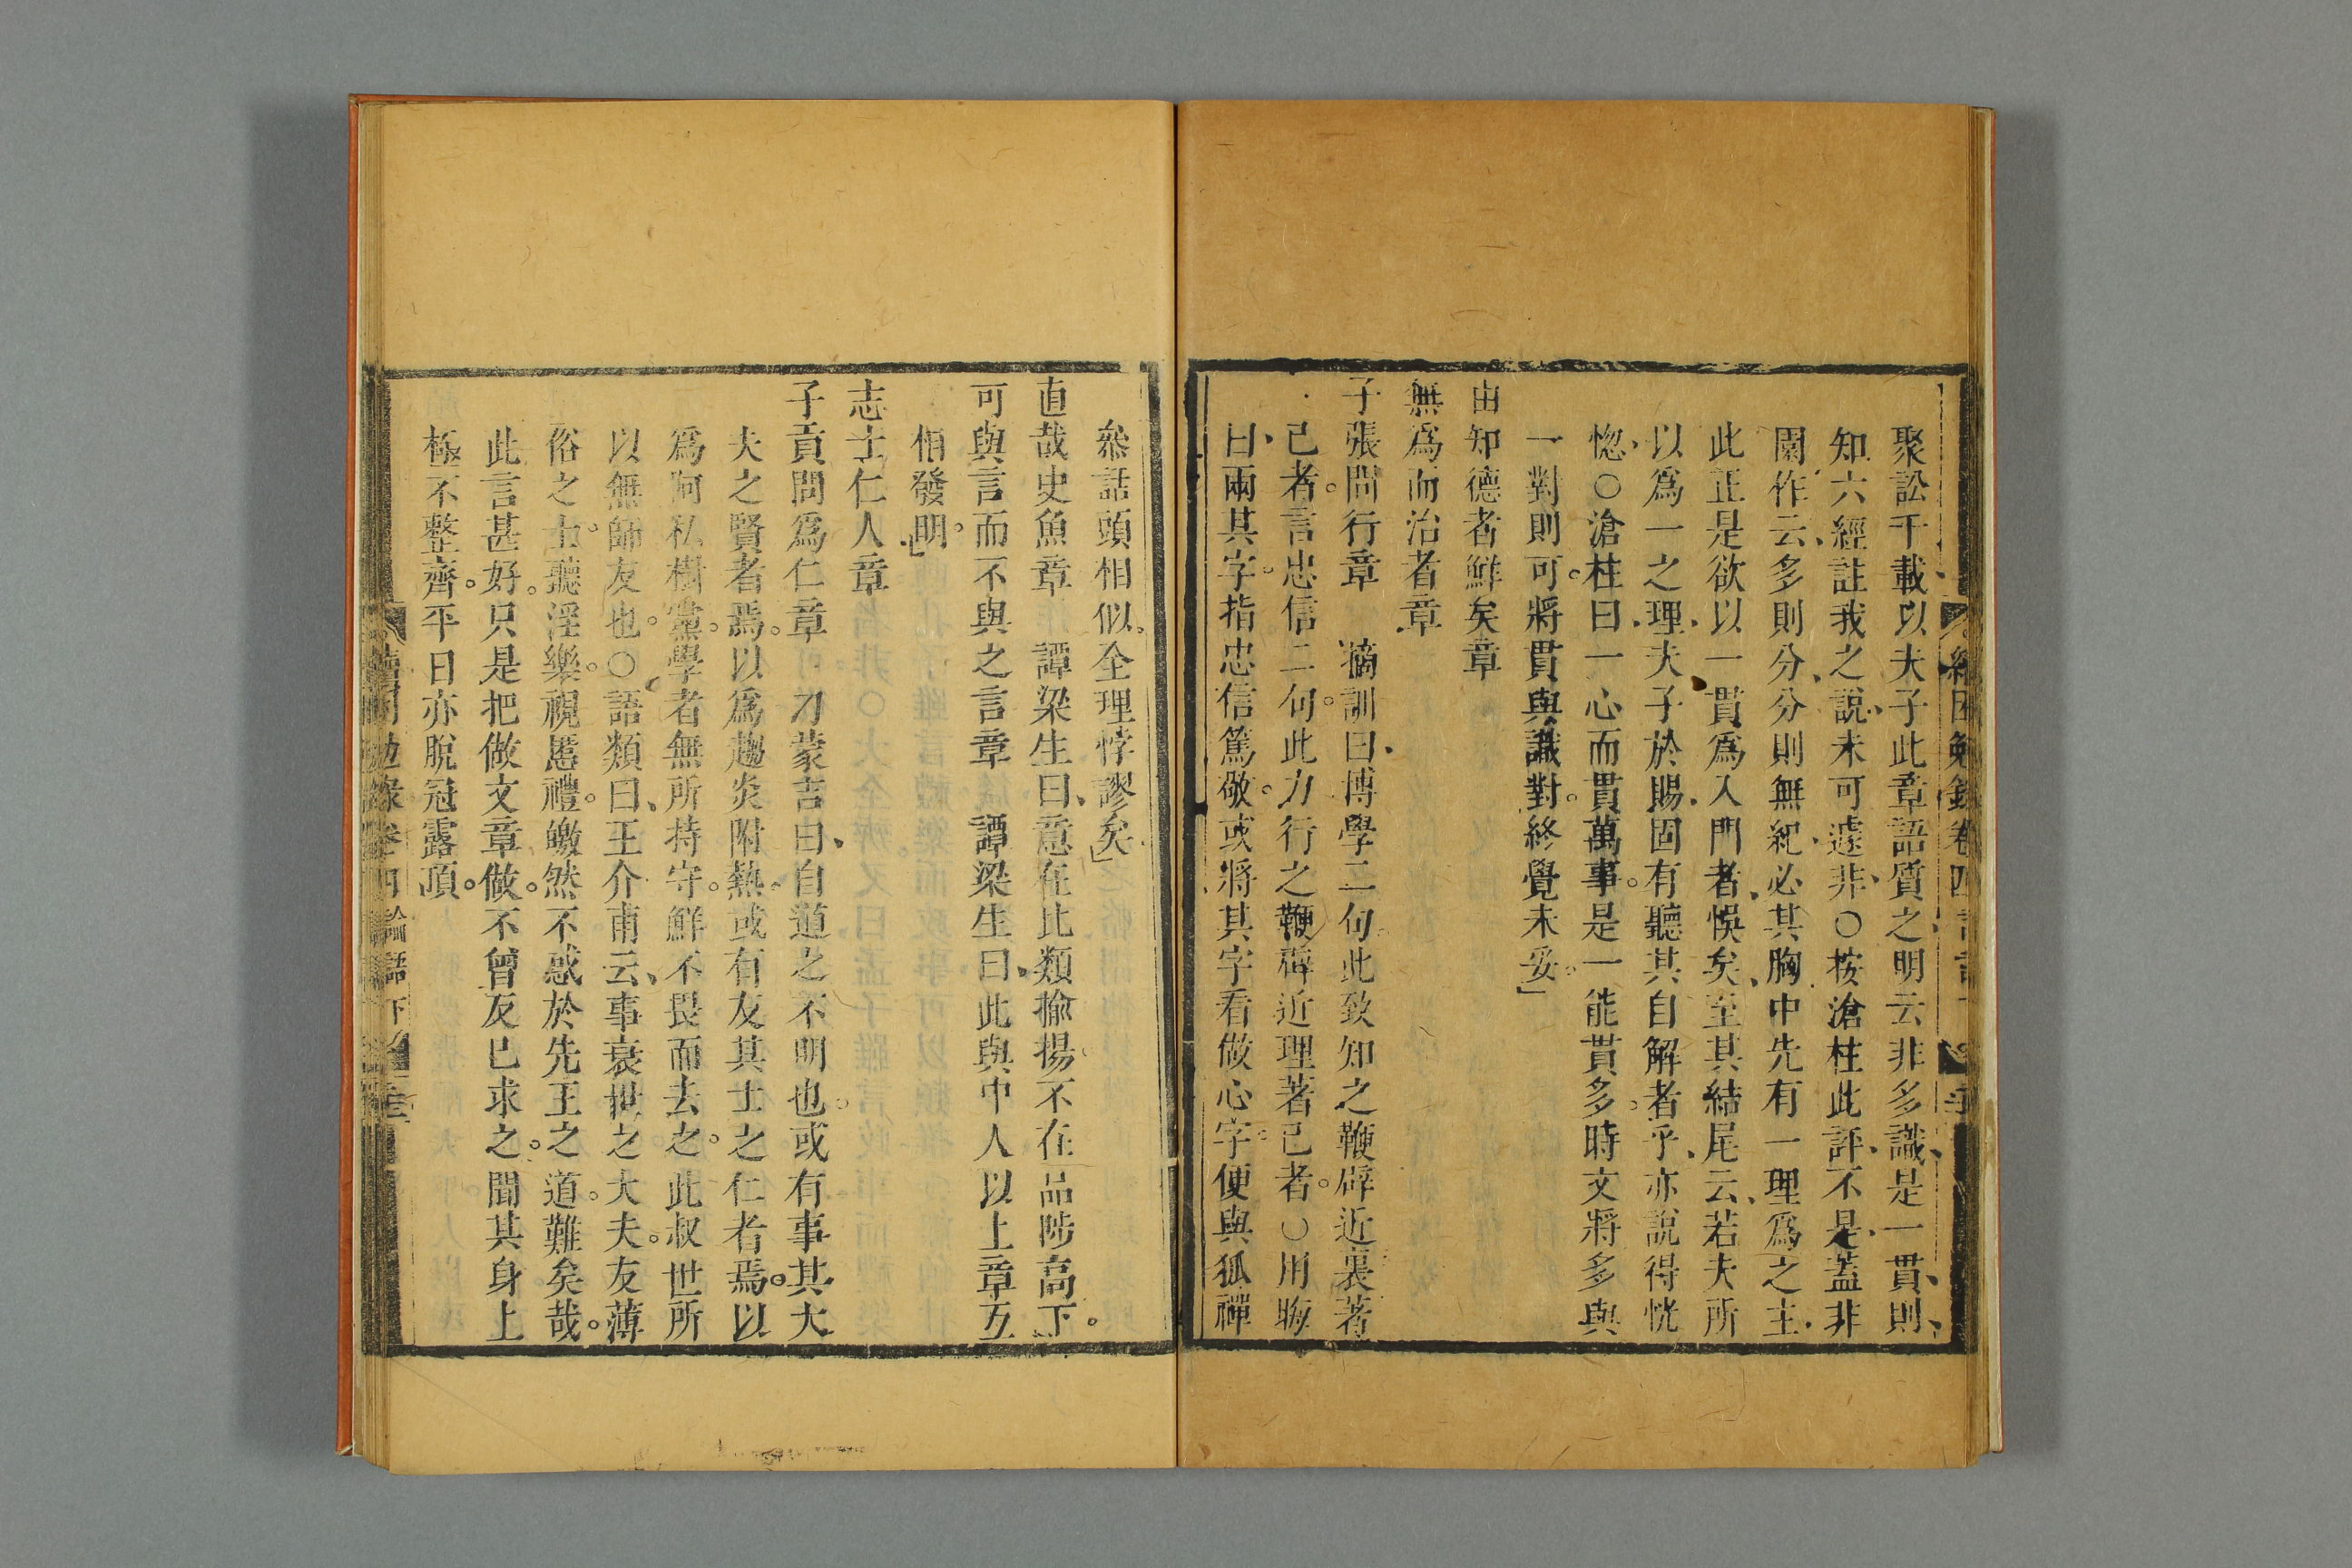 聚訟千載以夫子此章語質之明云非多識是一貫則
知六經註我之說未可遽非〇按滄柱此評不是蓋非
闈作云多則分分則無紀必其胸中先有一理爲之主
此正是欲以一貫爲入門者悞矣至其結尾云若夫所
以爲一之理夫子於賜固有聽其自解者乎亦說得恍
惚〇滄柱曰一心而貫萬事是一能貫多時文將多與
一對則可將貫與識對終覺未妥」
由知德者鮮矣章
無爲而治者章
子張問行章　摘訓曰博學二句此致知之鞭辟近裏著
己者言忠信二句此力行之鞭辟近理著己者〇用晦
曰兩其字指忠信篤敬或將其字看做心字便與狐禪
叅話頭相似全理悖謬矣」
直哉史魚章　譚梁生曰意在比類揄揚不在品陟高下
可與言而不與之言章　譚梁生曰此與中人以上章互
相發明」
志士仁人章
子貢問爲仁章　刁蒙吉曰自道之不明也或有事其大
夫之賢者焉以爲趨炎附熱或有友其士之仁者焉以
爲阿私樹黨學者無所持守鮮不畏而去之此叔世所
以無師友也〇語類曰王介甫云事衰世之大夫友薄
俗之士聽淫樂視慝禮皦然不惑於先王之道難矣哉
此言甚好只是把做文章做不曾反已求之聞其身上
極不整齊平日亦脫冠露頂
續困勉錄卷四論語下